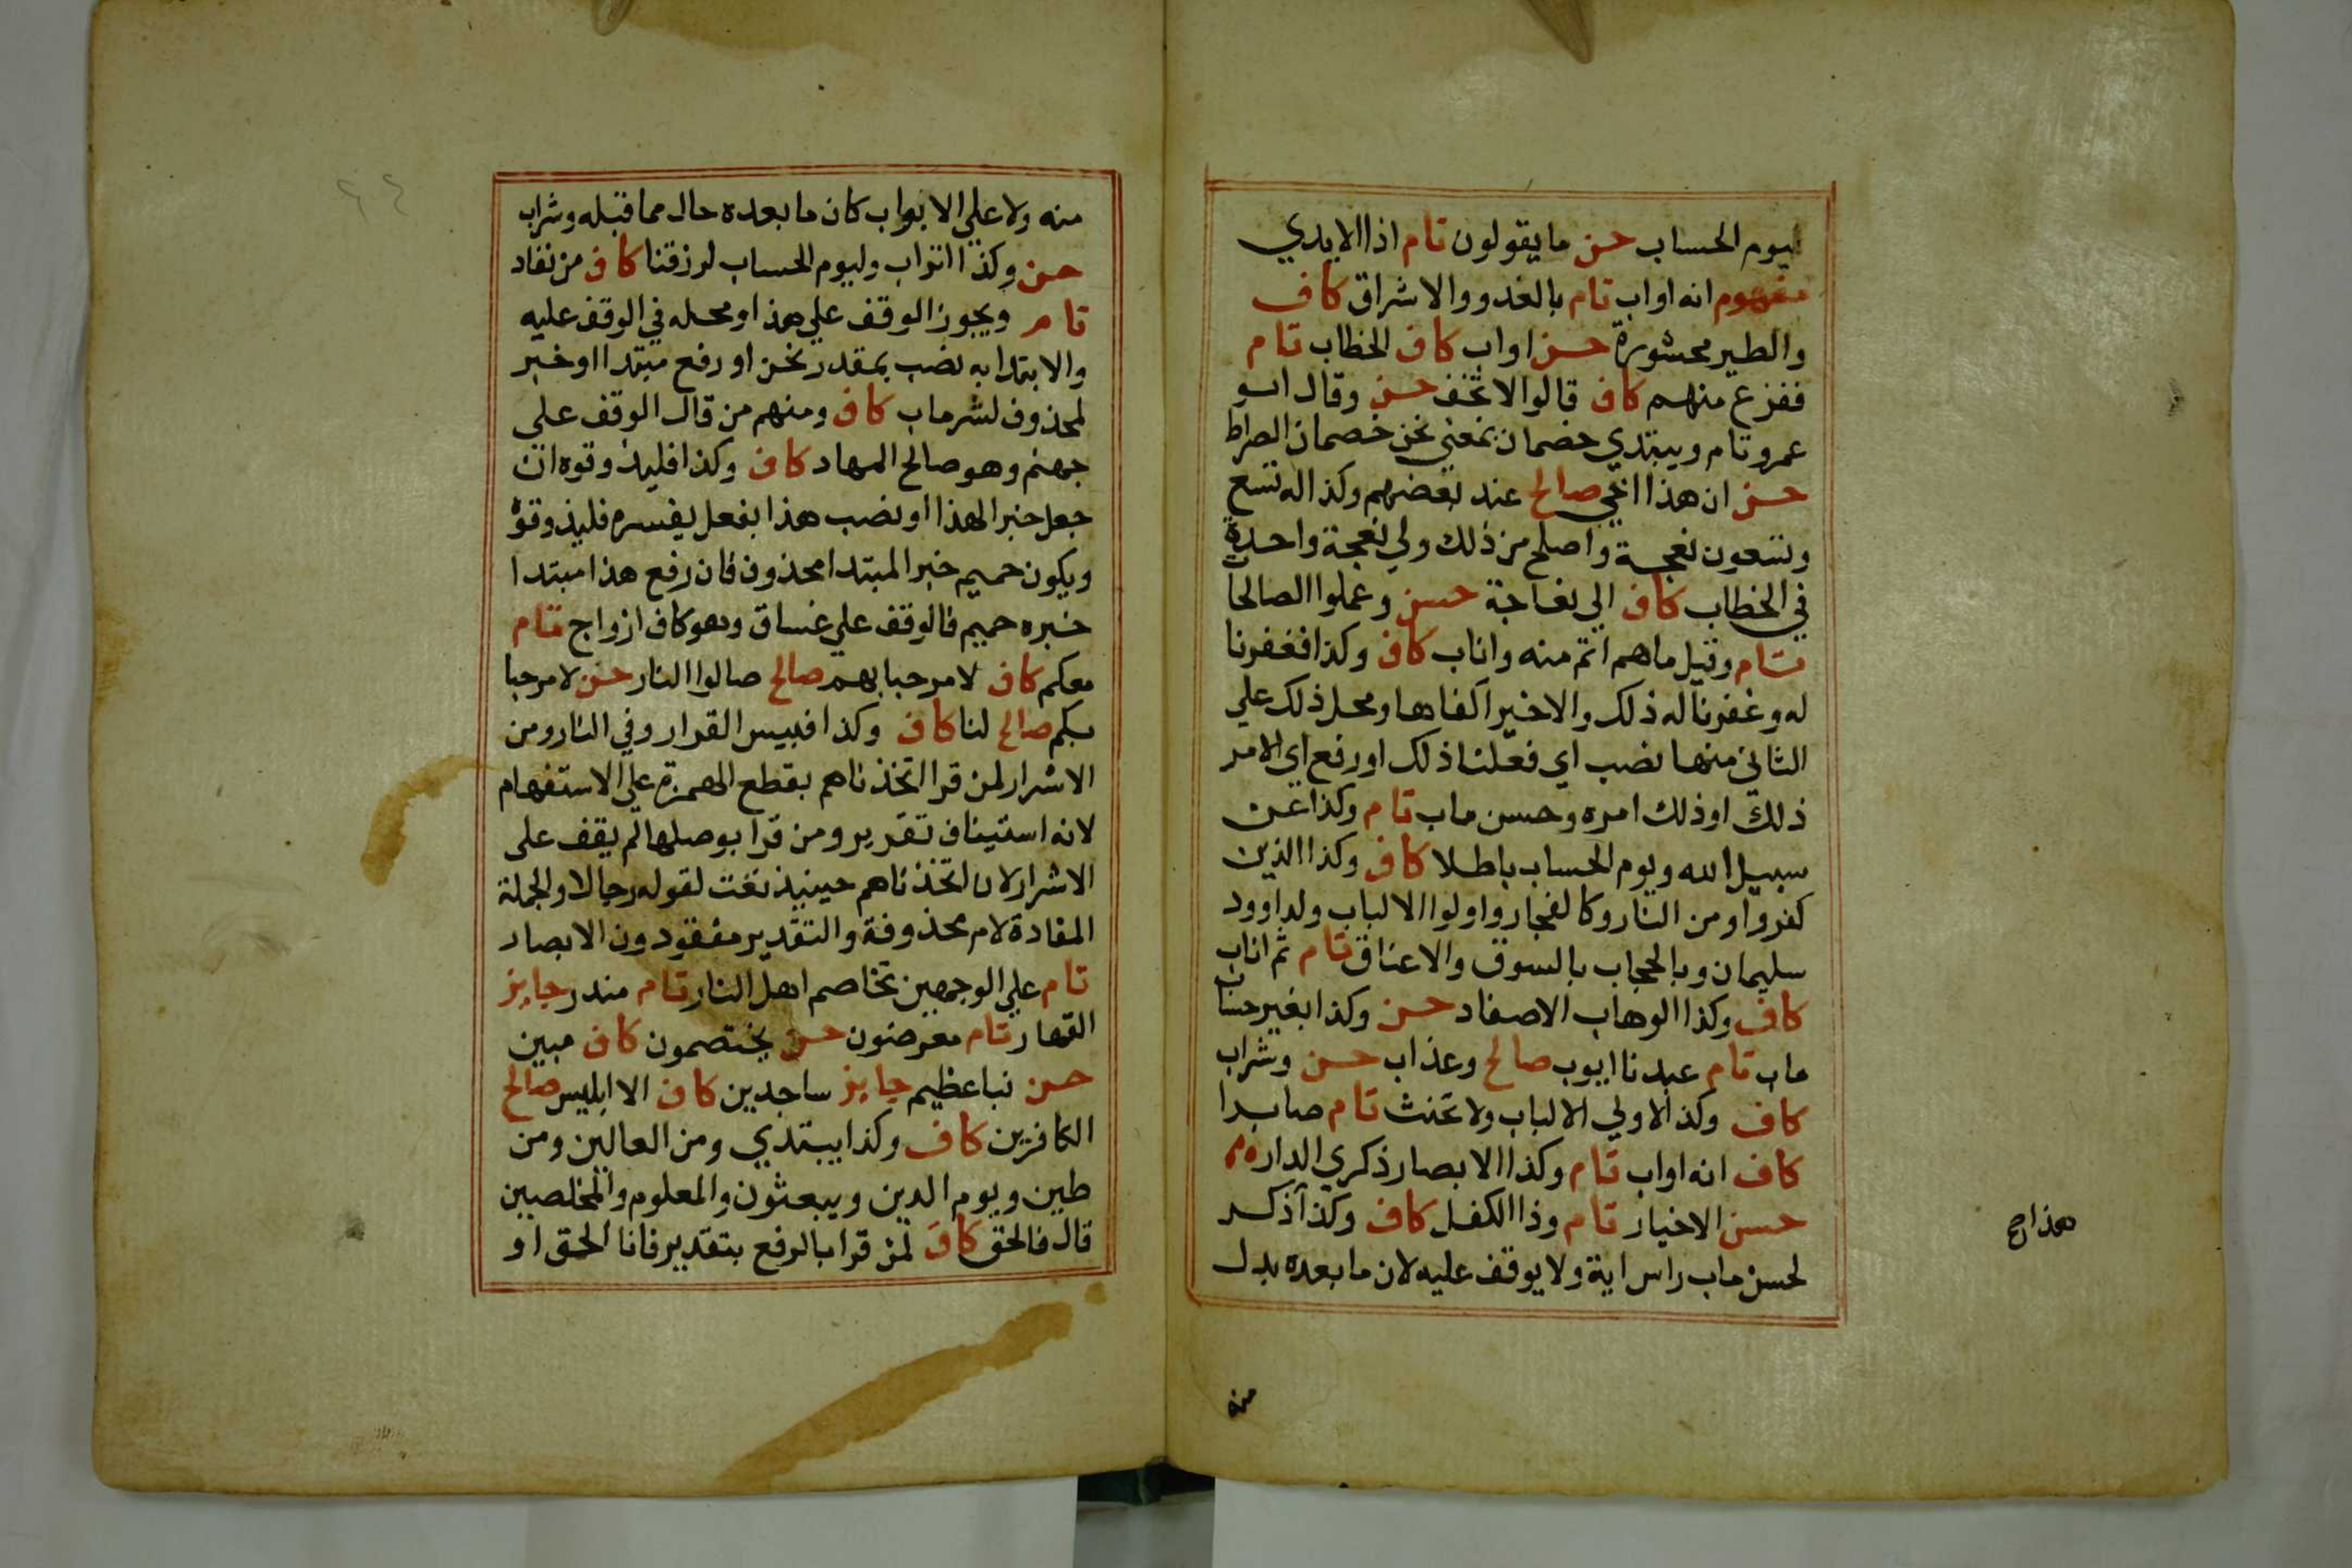 ليوم الحساب حسن ما يقولون تام اذا الايدي
مفهوم انه اواب تام بالغدو والاشراق كاف
والطير محشورة حسن اواب كاف الخطاب تام
ففزع منهم كاف قالوا لا تخف حسن وقال ابو
عمرو تام ويبتدي خصمان بمعني نحن خصمان الصراط
حسن ان هذا اخي صالح عند بعضهم وكذا له تسع
وتسعون نعجة واصلح من ذلك ولي نعجة واحدة
في الخطاب كاف الي نعاجه حسن وعملوا الصالحات
تام وقيل ما هم اتم منه واناب كاف وكذا فغفرنا
له وغفرنا له ذلك والاخير اكفاها ومحل ذلك علي
الثاني منها نصب اي فعلنا ذلك او رفع اي الامر
ذلك او ذلك امره وحسن ماب تام وكذا عن
سبيل الله ويوم الحساب باطلا كاف وكذا الذين
كفروا ومن النار وكالفجار واولوا الالباب ولداوود
سليمان وبالحجاب بالسوق والاعناق تام ثم اناب
كاف وكذا الوهاب الاصفاد حسن وكذا بغير حساب
ماب تام عبدنا ايوب صالح وعذاب حسن وشراب
كاف وكذا لاولي الالباب ولا تحنث تام صابرا
كاف انه اواب تام وكذا الابصار ذكري الدار
حسن الاخيار تام وذا الكفل كاف وكذا ذكر
لحسن ماب راس اية ولا يوقف عليه لان ما بعده بدل
هذا رح
منه
منه ولا علي الابواب كان ما بعده حال مما قبله وشراب
حسن وكذا اتراب وليوم الحساب لرزقنا كاف من نفاد
تام ويجوز الوقف علي هذا ومحله في الوقف عليه
والابتدا به نصب بمقدر نحن او رفع مبتدا او خبر
لمحذوف لشر ماب كاف ومنهم من قال الوقف علي
جهنم وهو صالح المهاد كاف وكذا فليذوقوه ان
جعل خبرا لهذا او نصب هذا بفعل يفسره فليذوقوه
ويكون حميم خبر المبتدا محذوف فان رفع هذا مبتدا
خبره حميم فالوقف علي غساق وهو كاف ازواج تام
معكم كاف لا مرحبا بهم صالح صالوا النار حسن لا مرحبا
بكم صالح لنا كاف وكذا فبيس القرار وفي النار ومن
الاشرار لمن قرا اتخذناهم بقطع الهمزة علي الاستفهام
لانه استيناف تقرير ومن قرا بوصلها لم يقف علي
الاشرار لان اتخذناهم حينيذ نعت لقوله رجالا والجملة
المعادة لام محذوفة والتقدير مفقودون الابصار
تام علي الوجهين تخاصم اهل النار تام منذر جايز
القهار تام معرضون حسن يختصمون كاف مبين
حسن نبا عظيم جايز ساجدين كاف الا ابليس صالح
الكافرين كاف وكذا يبتدي ومن العالين ومن
طين ويوم الدين ويبعثون والمعلوم والمخلصين
قال فالحق كاف لمن قرا بالرفع بتقدير فانا الحق او